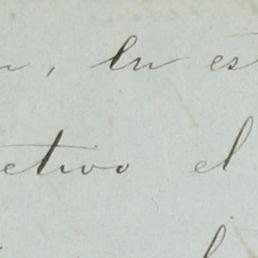 n, en es
etivo el